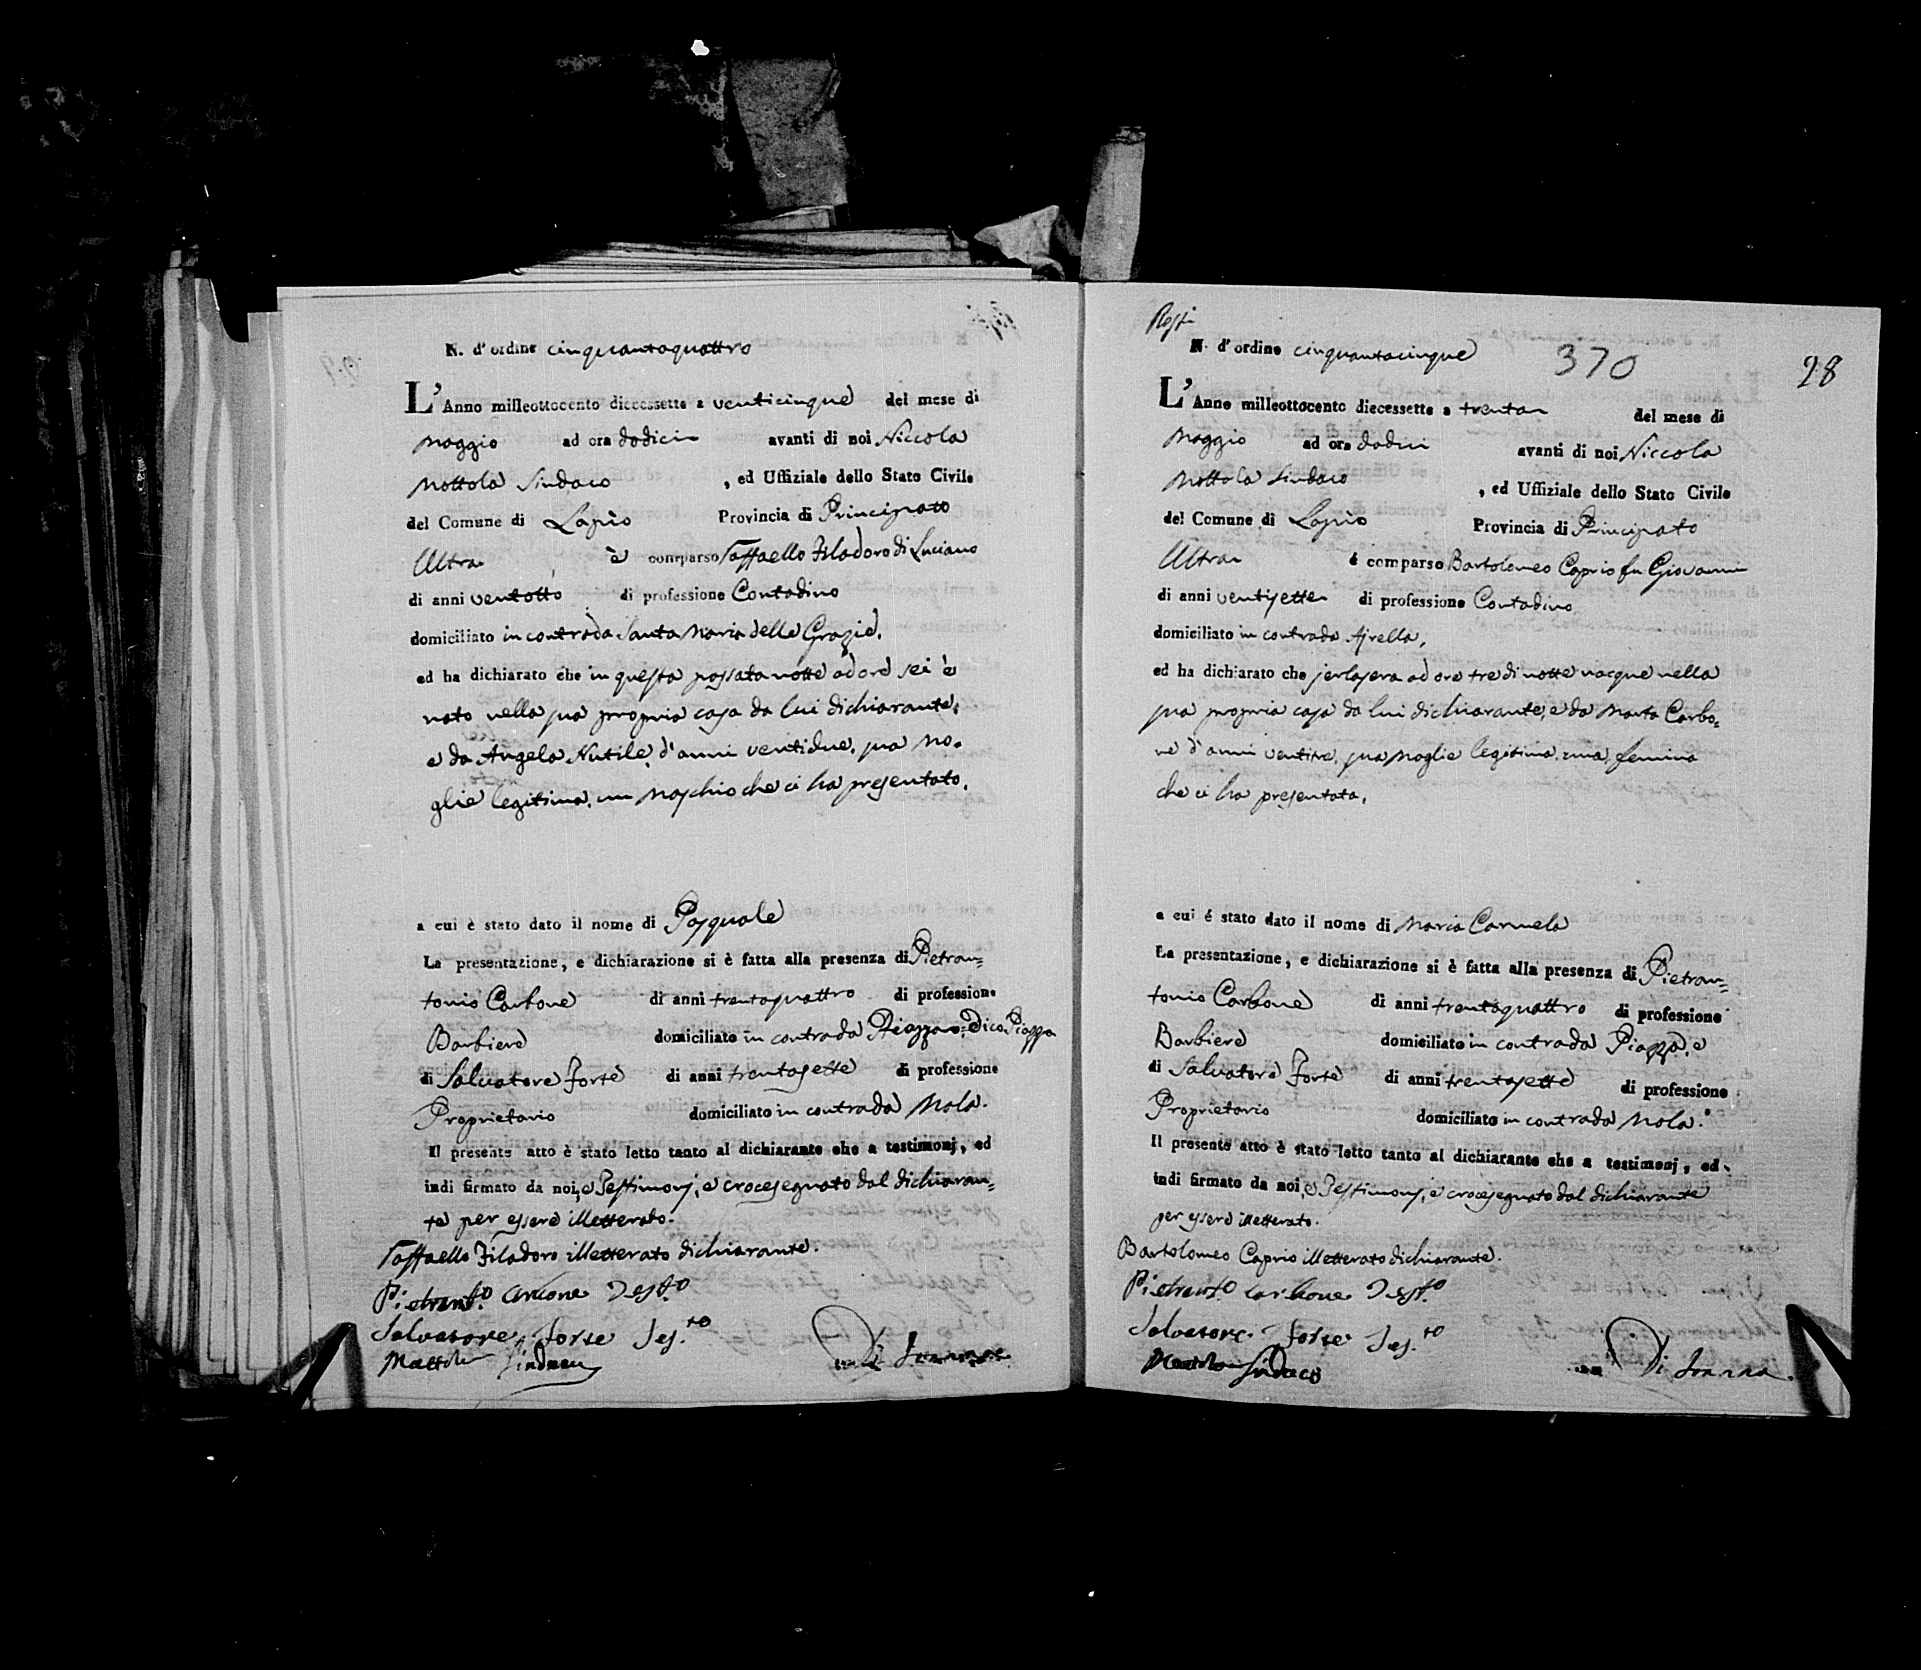 N. d'ordine cinquantaquattro
L'Anno milleottocento diecessette a venticinque del mese di
Maggio ad ora dodici avanti di noi Niccola
Mottola Sindaco , ed Uffiziale dello Stato Civile
del Comune di Lapio Provincia di Principato
Ultra è comparso Raffaello Filadoro di Luciano
di anni ventotto di professione Contadino
domiciliato in contrada Santa Maria delle Grazie,
ed ha dichiarato che in questa passata notte ad ore sei è
nato nella sua propria casa da lui dichiarante,
e da Angela Nutile, d'anni ventidue, sua mo=
glie legitima, un Maschio che ci ha presentato,
a cui è stato dato il nome di Pasquale
La presentazione, e dichiarazione si è fatta alla presenza di Pietran=
tonio Carbone di anni trentaquattro di professione
Barbiere domiciliato in contrada Piazza=Dico Piazza
di Salvatore Forte di anni trentasette di professione
Proprietario domiciliato in contrada Nola.
Il presente atto è stato letto tanto al dichiarante che a testimonj, ed
indi firmato da noi, e Testimonj, e crocesegnato dal dichiaran=
te per essere illetterato.
Raffaello Filadoro illetterato dichiarante.
Pietrant.o Carbone Test.o
Salvatore Forte Tes.to
Mottola Sindaco
Di Joanna
Resti
N. d'ordine cinquantacinque
370
28
L'Anno milleottocento diecessette a trenta del mese di
Maggio ad ora dodici avanti di noi Niccola
Mottola Sindaco , ed Uffiziale dello Stato Civile
del Comune di Lapio Provincia di Principato
Ultra é comparso Bartolomeo Caprio fu Giovanni
di anni ventisette di professione Contadino
domiciliato in contrada Ajrella,
ed ha dichiarato che jerlasera ad ore tre di notte nacque nella
sua propria casa da lui dichiarante, e da Marta Carbo=
ne d'anni ventitre, sua Moglie legitima, una femina
che ci ha presentata,
a cui é stato dato il nome di Maria Carmela
La presentazione, e dichiarazione si è fatta alla presenza di Pietran=
tonio Carbone di anni trentaquattro di professione
Barbiere domiciliato in contrada Piazza, e
di Salvatore Forte di anni trentasette di professione
Proprietario domiciliato in contrada Nola.
Il presente atto è stato letto tanto al dichiarante che a testimonj, ed
indi firmato da noi, e Testimonj, e crocesegnato dal dichiarante
per essere illetterato.
Bartolomeo Caprio illetterato dichiarante.
Pietrant.o Carbone Test.o
Salvatore Forte Tes.to
Mottola Sindaco
Di Joanna